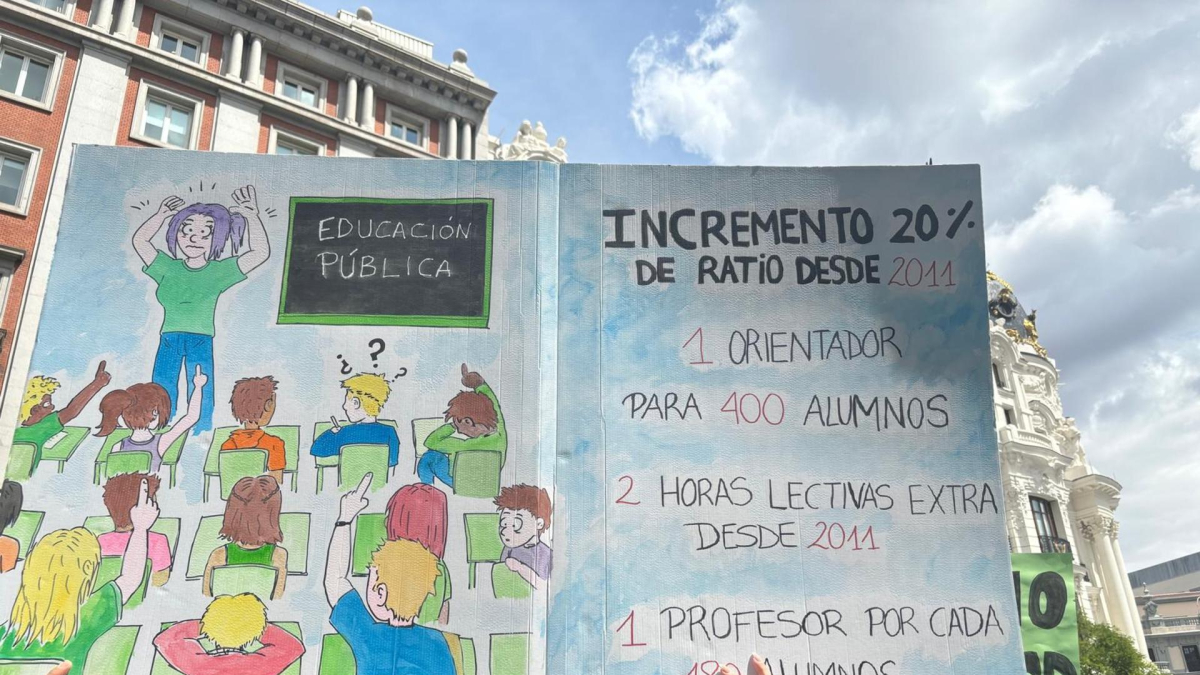 EDUCACIÓN
PÚBLICA
¿ ? ?
INCREMENTO 20%
DE RATIO DESDE 2011
1 ORIENTADOR
PARA 400 ALUMNOS
2 HORAS LECTIVAS EXTRA
DESDE 2011
1 PROFESOR POR CADA
180 ALUMNOS
NO